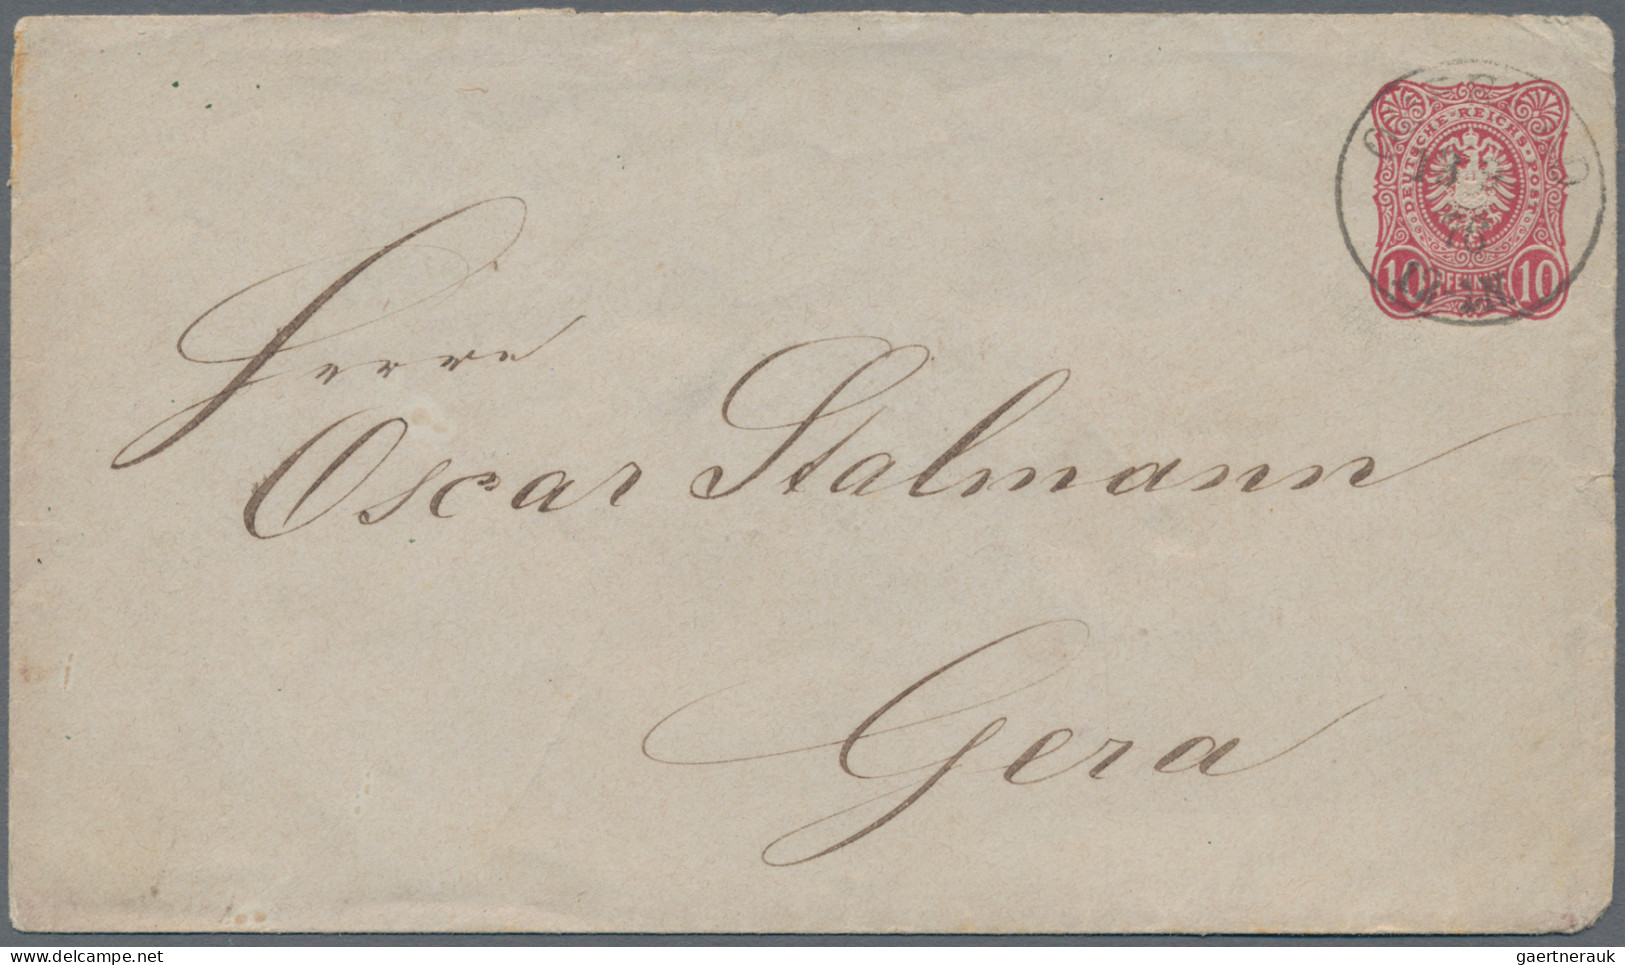 DEUTSCHE·REICHS·POST
10 PFENNIG 10
Herrn
Oscar Stalmann
Gera
gaertnerauk